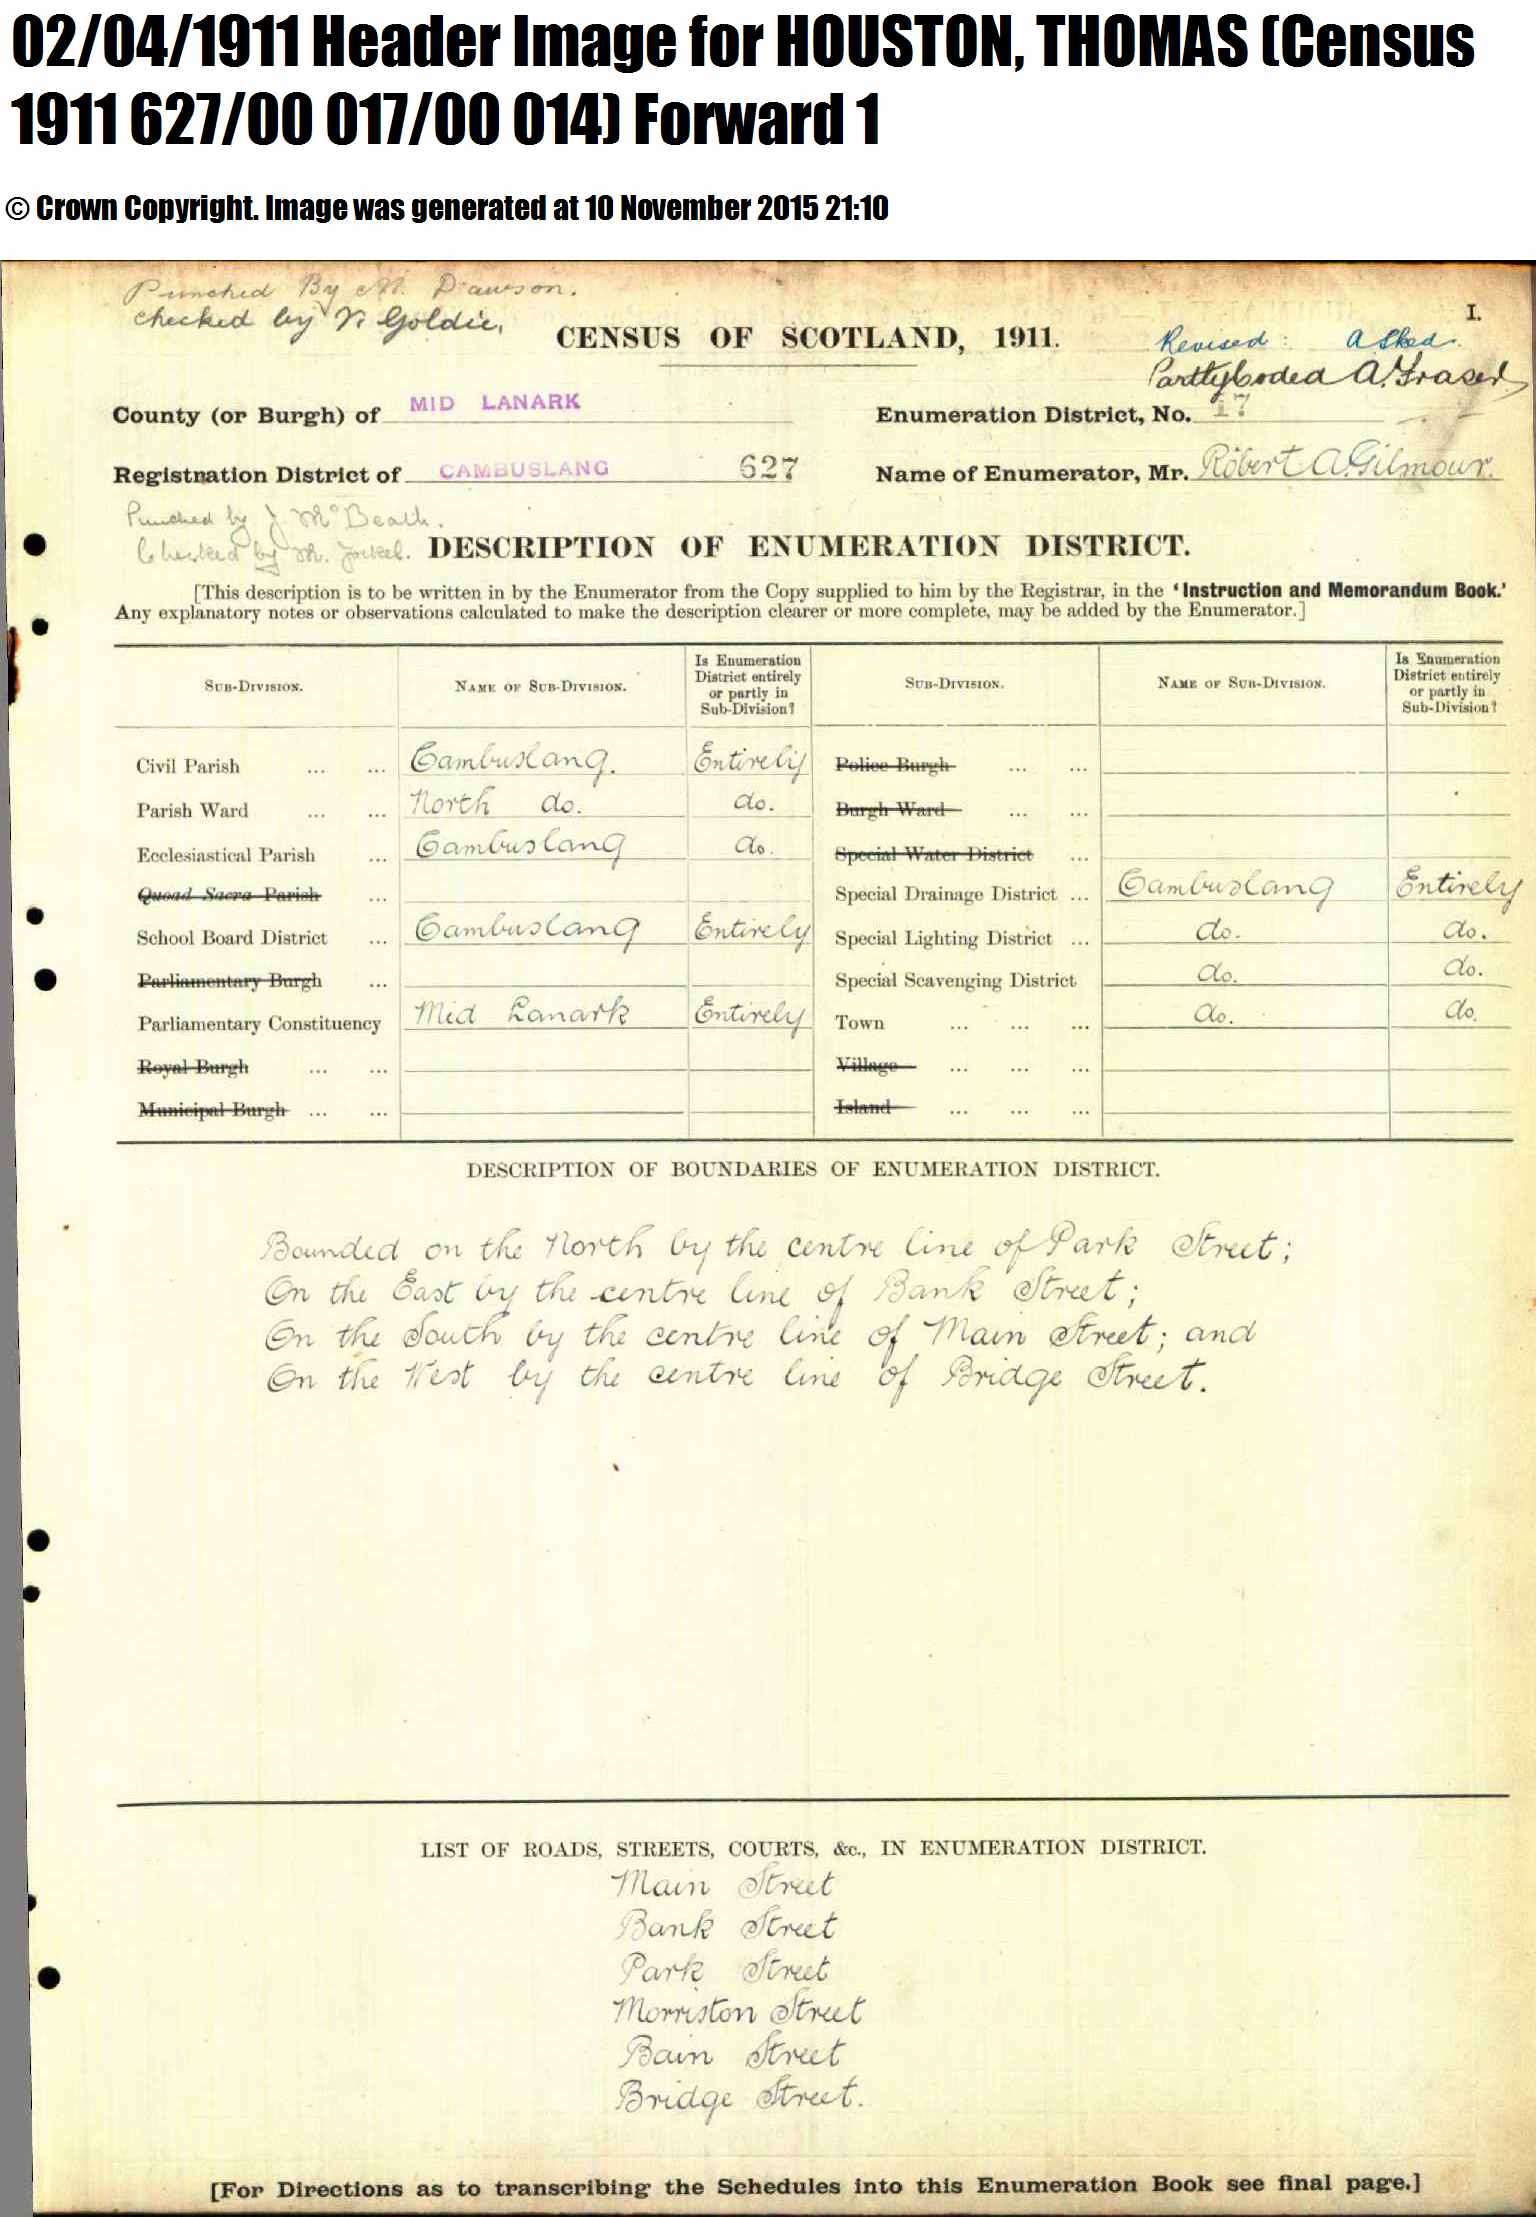 02/04/1911 Header Image for HOUSTON, THOMAS (Census
1911 627/00 017/00 014) Forward 1
© Crown Copyright. Image was generated at 10 November 2015 21:10
Punched By M. Dawson.
checked by N Goldie,
I.
CENSUS OF SCOTLAND, 1911.
Revised:
Partly Coded A. Fraser
County (or Burgh) of MID LANARK
Enumeration District, No. 17
Registration District of CAMBUSLANG 627
Name of Enumerator, Mr. Robert A. Gilmour.
Punched by J McBeath.
Checked by M.
DESCRIPTION OF ENUMERATION DISTRICT.
[This description is to be written in by the Enumerator from the Copy supplied to him by the Registrar, in the 'Instruction and Memorandum Book.'
Any explanatory notes or observations calculated to make the description clearer or more complete, may be added by the Enumerator.]
SUB-DIVISION. NAME OF SUB-DIVISION. Is Enumeration District entirely or partly in Sub-Division? SUB-DIVISION. NAME OF SUB-DIVISION. Is Enumeration District entirely or partly in Sub-Division?
Civil Parish ... ... Cambuslang. Entirely Police Burgh ... ...
Parish Ward ... ... North do. do. Burgh Ward ... ...
Ecclesiastical Parish ... Cambuslang do. Special Water District ...
Quoad Sacra Parish ... Special Drainage District ... Cambuslang Entirely
School Board District ... Cambuslang Entirely Special Lighting District ... do. do.
Parliamentary Burgh ... Special Scavenging District do. do.
Parliamentary Constituency Mid Lanark Entirely Town ... ... ... do. do.
Royal Burgh ... ... Village ... ... ...
Municipal Burgh ... ... Island ... ... ...
DESCRIPTION OF BOUNDARIES OF ENUMERATION DISTRICT.
Bounded on the North by the centre line of Park Street;
On the East by the centre line of Bank Street;
On the South by the centre line of Main Street; and
On the West by the centre line of Bridge Street.
LIST OF ROADS, STREETS, COURTS, &c., IN ENUMERATION DISTRICT.
Main Street
Bank Street
Park Street
Morriston Street
Bain Street
Bridge Street.
[For Directions as to transcribing the Schedules into this Enumeration Book see final page.]